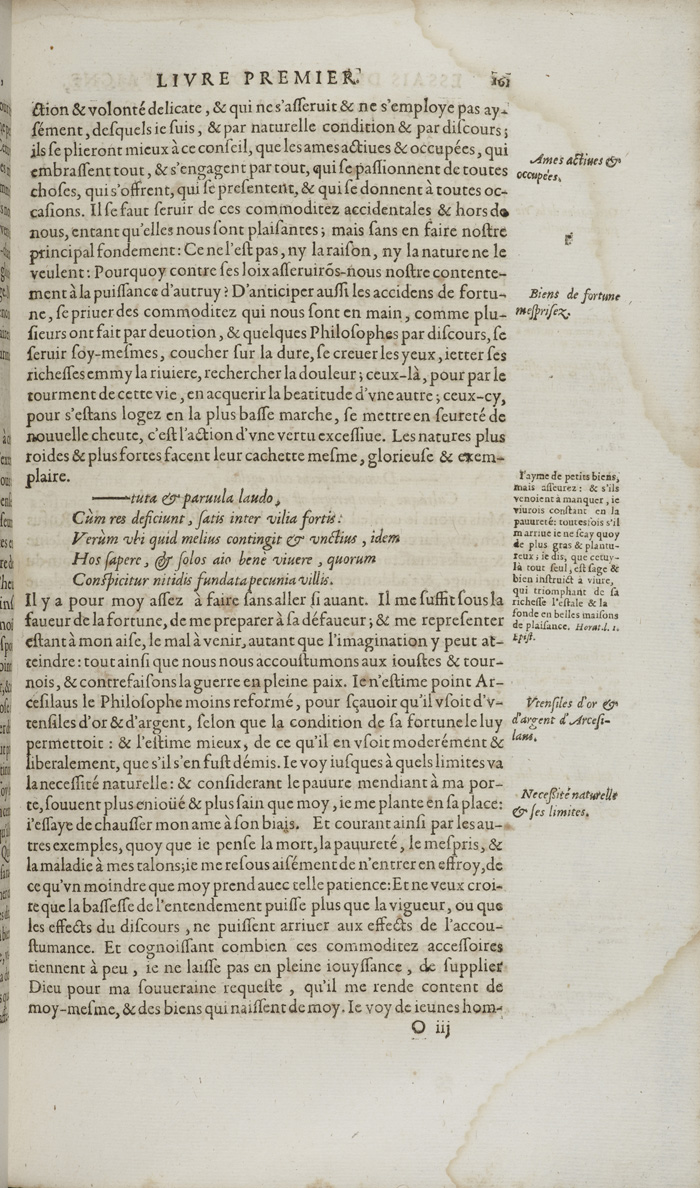 LIVRE PREMIER. 161
ction & volonté delicate, & qui ne s'asseruit & ne s'employe pas ay-
sément, desquels ie suis, & par naturelle condition & par discours;
ils se plieront mieux à ce conseil, que les ames actiues & occupées, qui
embrassent tout, & s'engagent par tout, qui se passionnent de toutes
choses, qui s'offrent, qui se presentent, & qui se donnent à toutes oc-
casions. Il se faut seruir de ces commoditez accidentales & hors de
nous, entant qu'elles nous sont plaisantes; mais sans en faire nostre
principal fondement: Ce ne l'est pas, ny la raison, ny la nature ne le
veulent: Pourquoy contre ses loix asseruirõs-nous nostre contente-
ment à la puissance d'autruy? D'anticiper aussi les accidens de fortu-
ne, se priuer des commoditez qui nous sont en main, comme plu-
sieurs ont fait par deuotion, & quelques Philosophes par discours, se
seruir soy-mesmes, coucher sur la dure, se creuer les yeux, ietter ses
richesses emmy la riuiere, rechercher la douleur; ceux-là, pour par le
tourment de cette vie, en acquerir la beatitude d'vne autre; ceux-cy,
pour s'estans logez en la plus basse marche, se mettre en seureté de
nouuelle cheute, c'est l'action d'vne vertu excessiue. Les natures plus
roides & plus fortes facent leur cachette mesme, glorieuse & exem-
plaire.
——tuta & paruula laudo,
Cùm res deficiunt, satis inter vilia fortis:
Verùm vbi quid melius contingit & vnctius, idem
Hos sapere, & solos aio benè viuere, quorum
Conspicitur nitidis fundata pecunia villis.
Il y a pour moy assez à faire sans aller si auant. Il me suffit sous la
faueur de la fortune, de me preparer à sa défaueur; & me representer
estant à mon aise, le mal à venir, autant que l'imagination y peut at-
teindre: tout ainsi que nous nous accoustumons aux ioustes & tour-
nois, & contrefaisons la guerre en pleine paix. Ie n'estime point Ar-
cesilaus le Philosophe moins reformé, pour sçauoir qu'il vsoit d'v-
tensiles d'or & d'argent, selon que la condition de sa fortune le luy
permettoit: & l'estime mieux, de ce qu'il en vsoit moderément &
liberalement, que s'il s'en fust démis. Ie voy iusques à quels limites va
la necessité naturelle: & considerant le pauure mendiant à ma por-
te, souuent plus enioüé & plus sain que moy, ie me plante en sa place:
i'essaye de chausser mon ame à son biais. Et courant ainsi par les au-
tres exemples, quoy que ie pense la mort, la pauureté, le mespris, &
la maladie à mes talons; ie me resous aisément de n'entrer en effroy, de
ce qu'vn moindre que moy prend auec telle patience: Et ne veux croi-
re que la bassesse de l'entendement puisse plus que la vigueur, ou que
les effects du discours, ne puissent arriuer aux effects de l'accou-
stumance. Et cognoissant combien ces commoditez accessoires
tiennent à peu, ie ne laisse pas en pleine iouyssance, de supplier
Dieu pour ma souueraine requeste, qu'il me rende content de
moy-mesme, & des biens qui naissent de moy. Ie voy de ieunes hom-
O iij
Ames actiues &
occupées.
Biens de fortune
mesprisez.
I'ayme de petits biens,
mais asseurez: & s'ils
venoient à manquer, ie
viurois constant en la
pauureté: toutesfois s'il
m'arriue ie ne sçay quoy
de plus gras & plantu-
reux; ie dis, que cetuy-
là tout seul, est sage &
bien instruict à viure,
qui triomphant de sa
richesse l'estale & la
fonde en belles maisons
de plaisance. Horat. l. 1.
Epist.
Vtensiles d'or &
d'argent d'Arcesi-
laus.
Necessité naturelle
& ses limites.